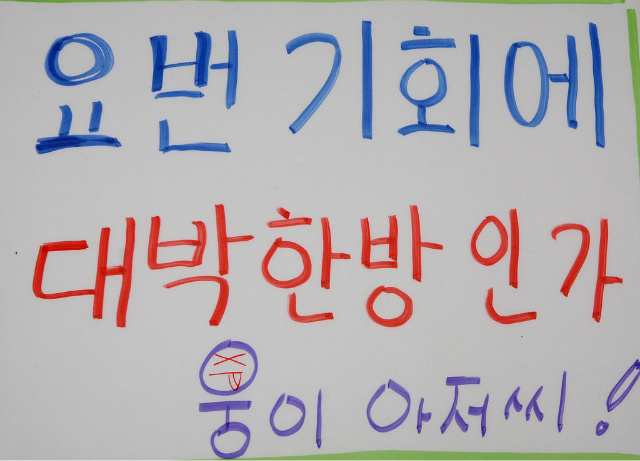 요번 기회에
대박 한방 인가
XP
웅이 아저씨!